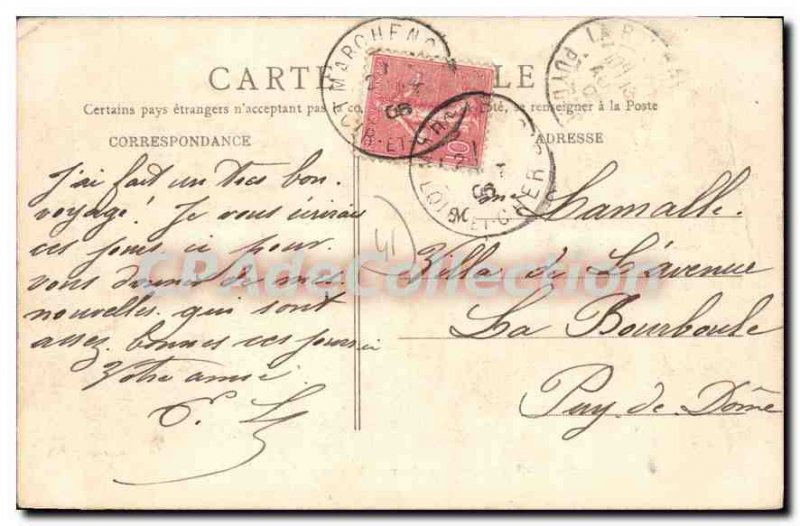 CARTE
LE
Certains pays étrangers n'acceptant pas la co
té, se renseigner à la Poste
CORRESPONDANCE
ADRESSE
MARCHENO
LOIR-ET
06
10
LOIR-ET-CHER
06
LA B
PUY-D
J'ai fait un tres bon
voyage! Je vous écrirai
ces jours ci pour
vous donner de mes
nouvelles qui sont
assez bonnes ces jours ci
Votre amie
41
Lamalle
Villa de L'avenue
La Bourboule
Puy-de-Dôme
CPAdeCollection